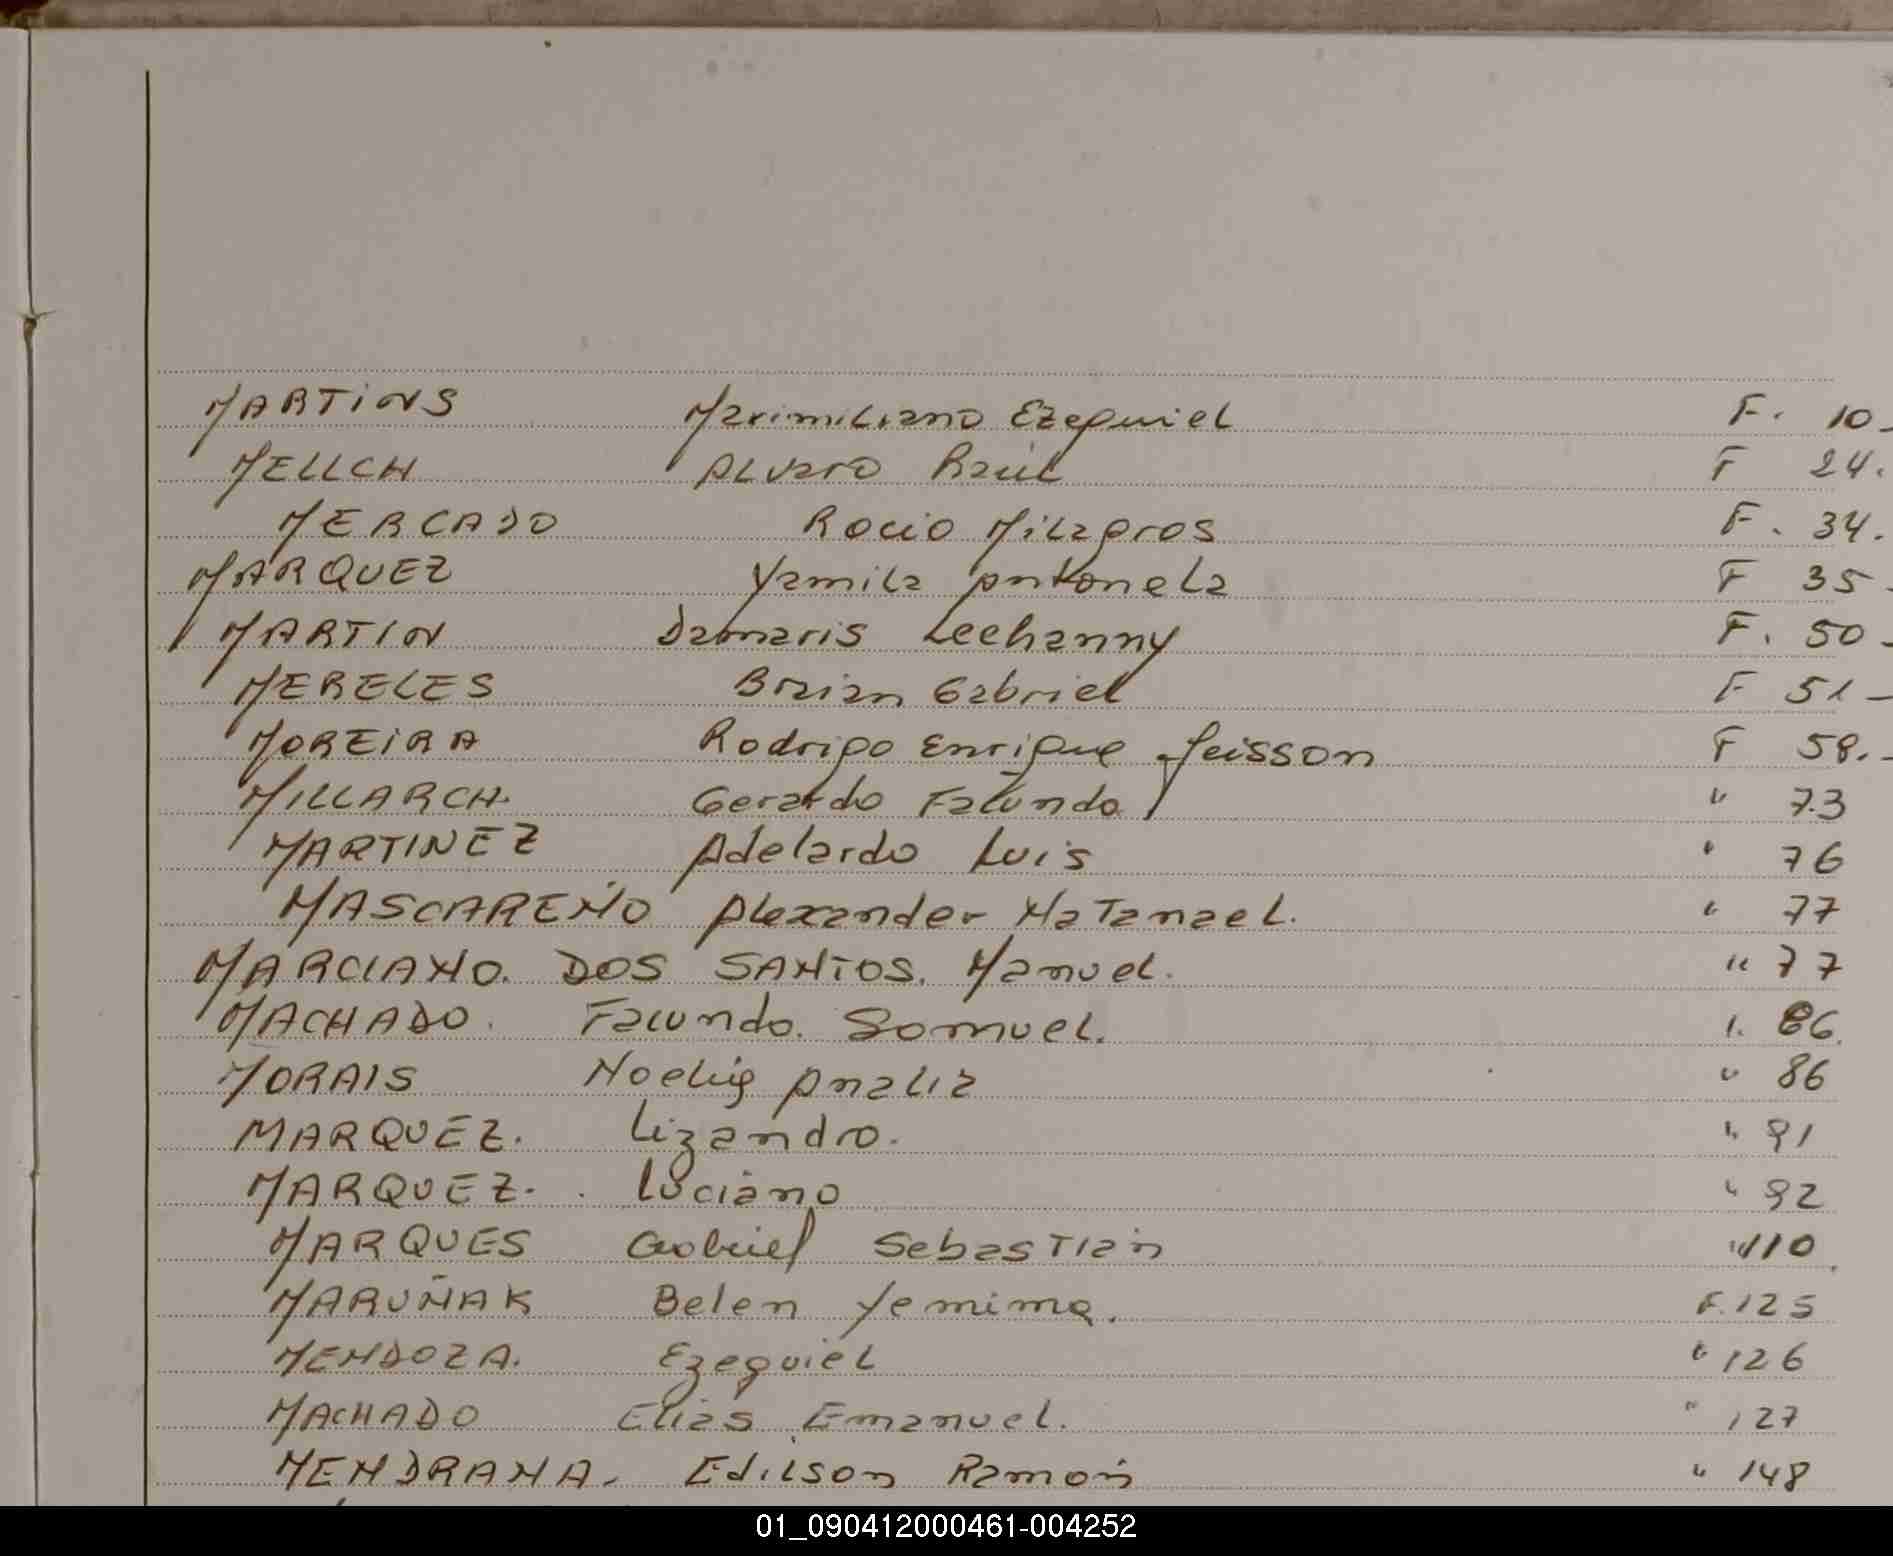 MARTINS Maximiliano Ezequiel F. 10-
MELLCH Alvaro Raúl F 24.
MERCADO Rocio Milagros F. 34.
MARQUEZ Yamila Antonela F 35-
MARTIN Damaris Leehanny F. 50-
MERELES Braian Gabriel F 51-
MOREIRA Rodrigo Enrique Jeisson F 58.-
MILLARCH. Gerardo Facundo " 73
MARTINEZ Adelardo Luis " 76
MASCAREÑO Alexander Natanael. " 77
MARCIANO. DOS SANTOS. Manuel. " 77
MACHADO. Facundo. Samuel. " 86.
MORAIS Analia " 86
MARQUEZ. Lizandro. " 91
MARQUEZ. Luciano " 92
MARQUES Gabriel Sebastián " 110
MARUÑAK Belen Yemima. F. 125
MENDOZA. Ezequiel " 126
MACHADO Elias Emanuel. " 127
MENDRANA. Edilson Ramón " 148
01_090412000461-004252